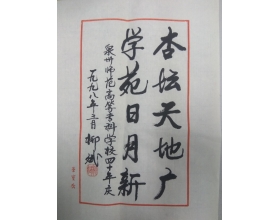 杏坛天地广
学苑日月新
泉州师范高等专科学校四十年庆
一九九八年三月 柳斌